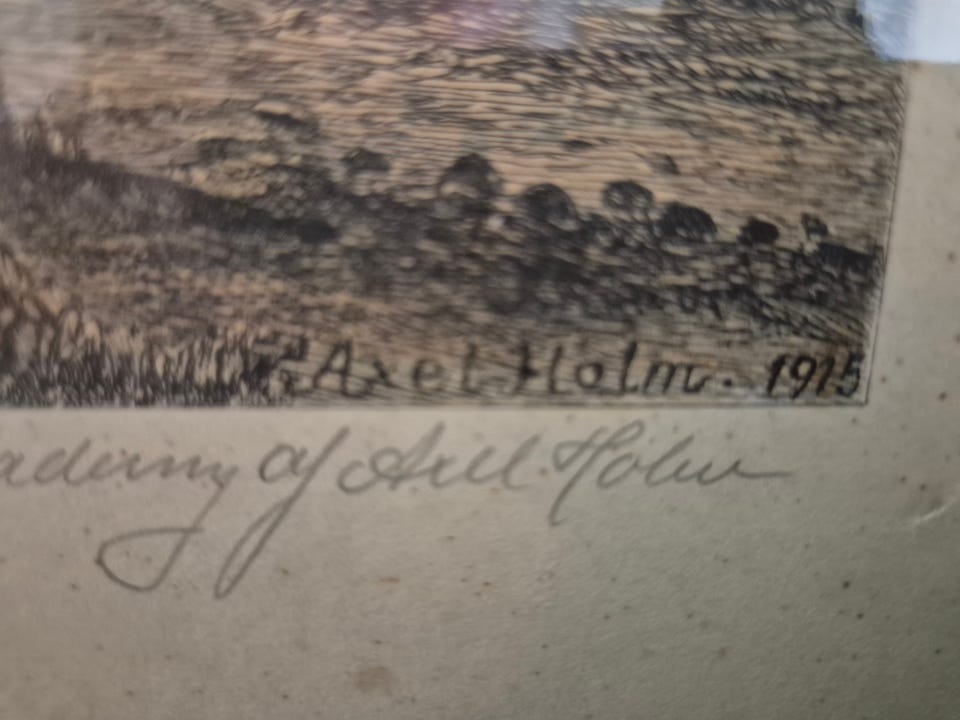 Axel Holm. 1915
af Axel Holm